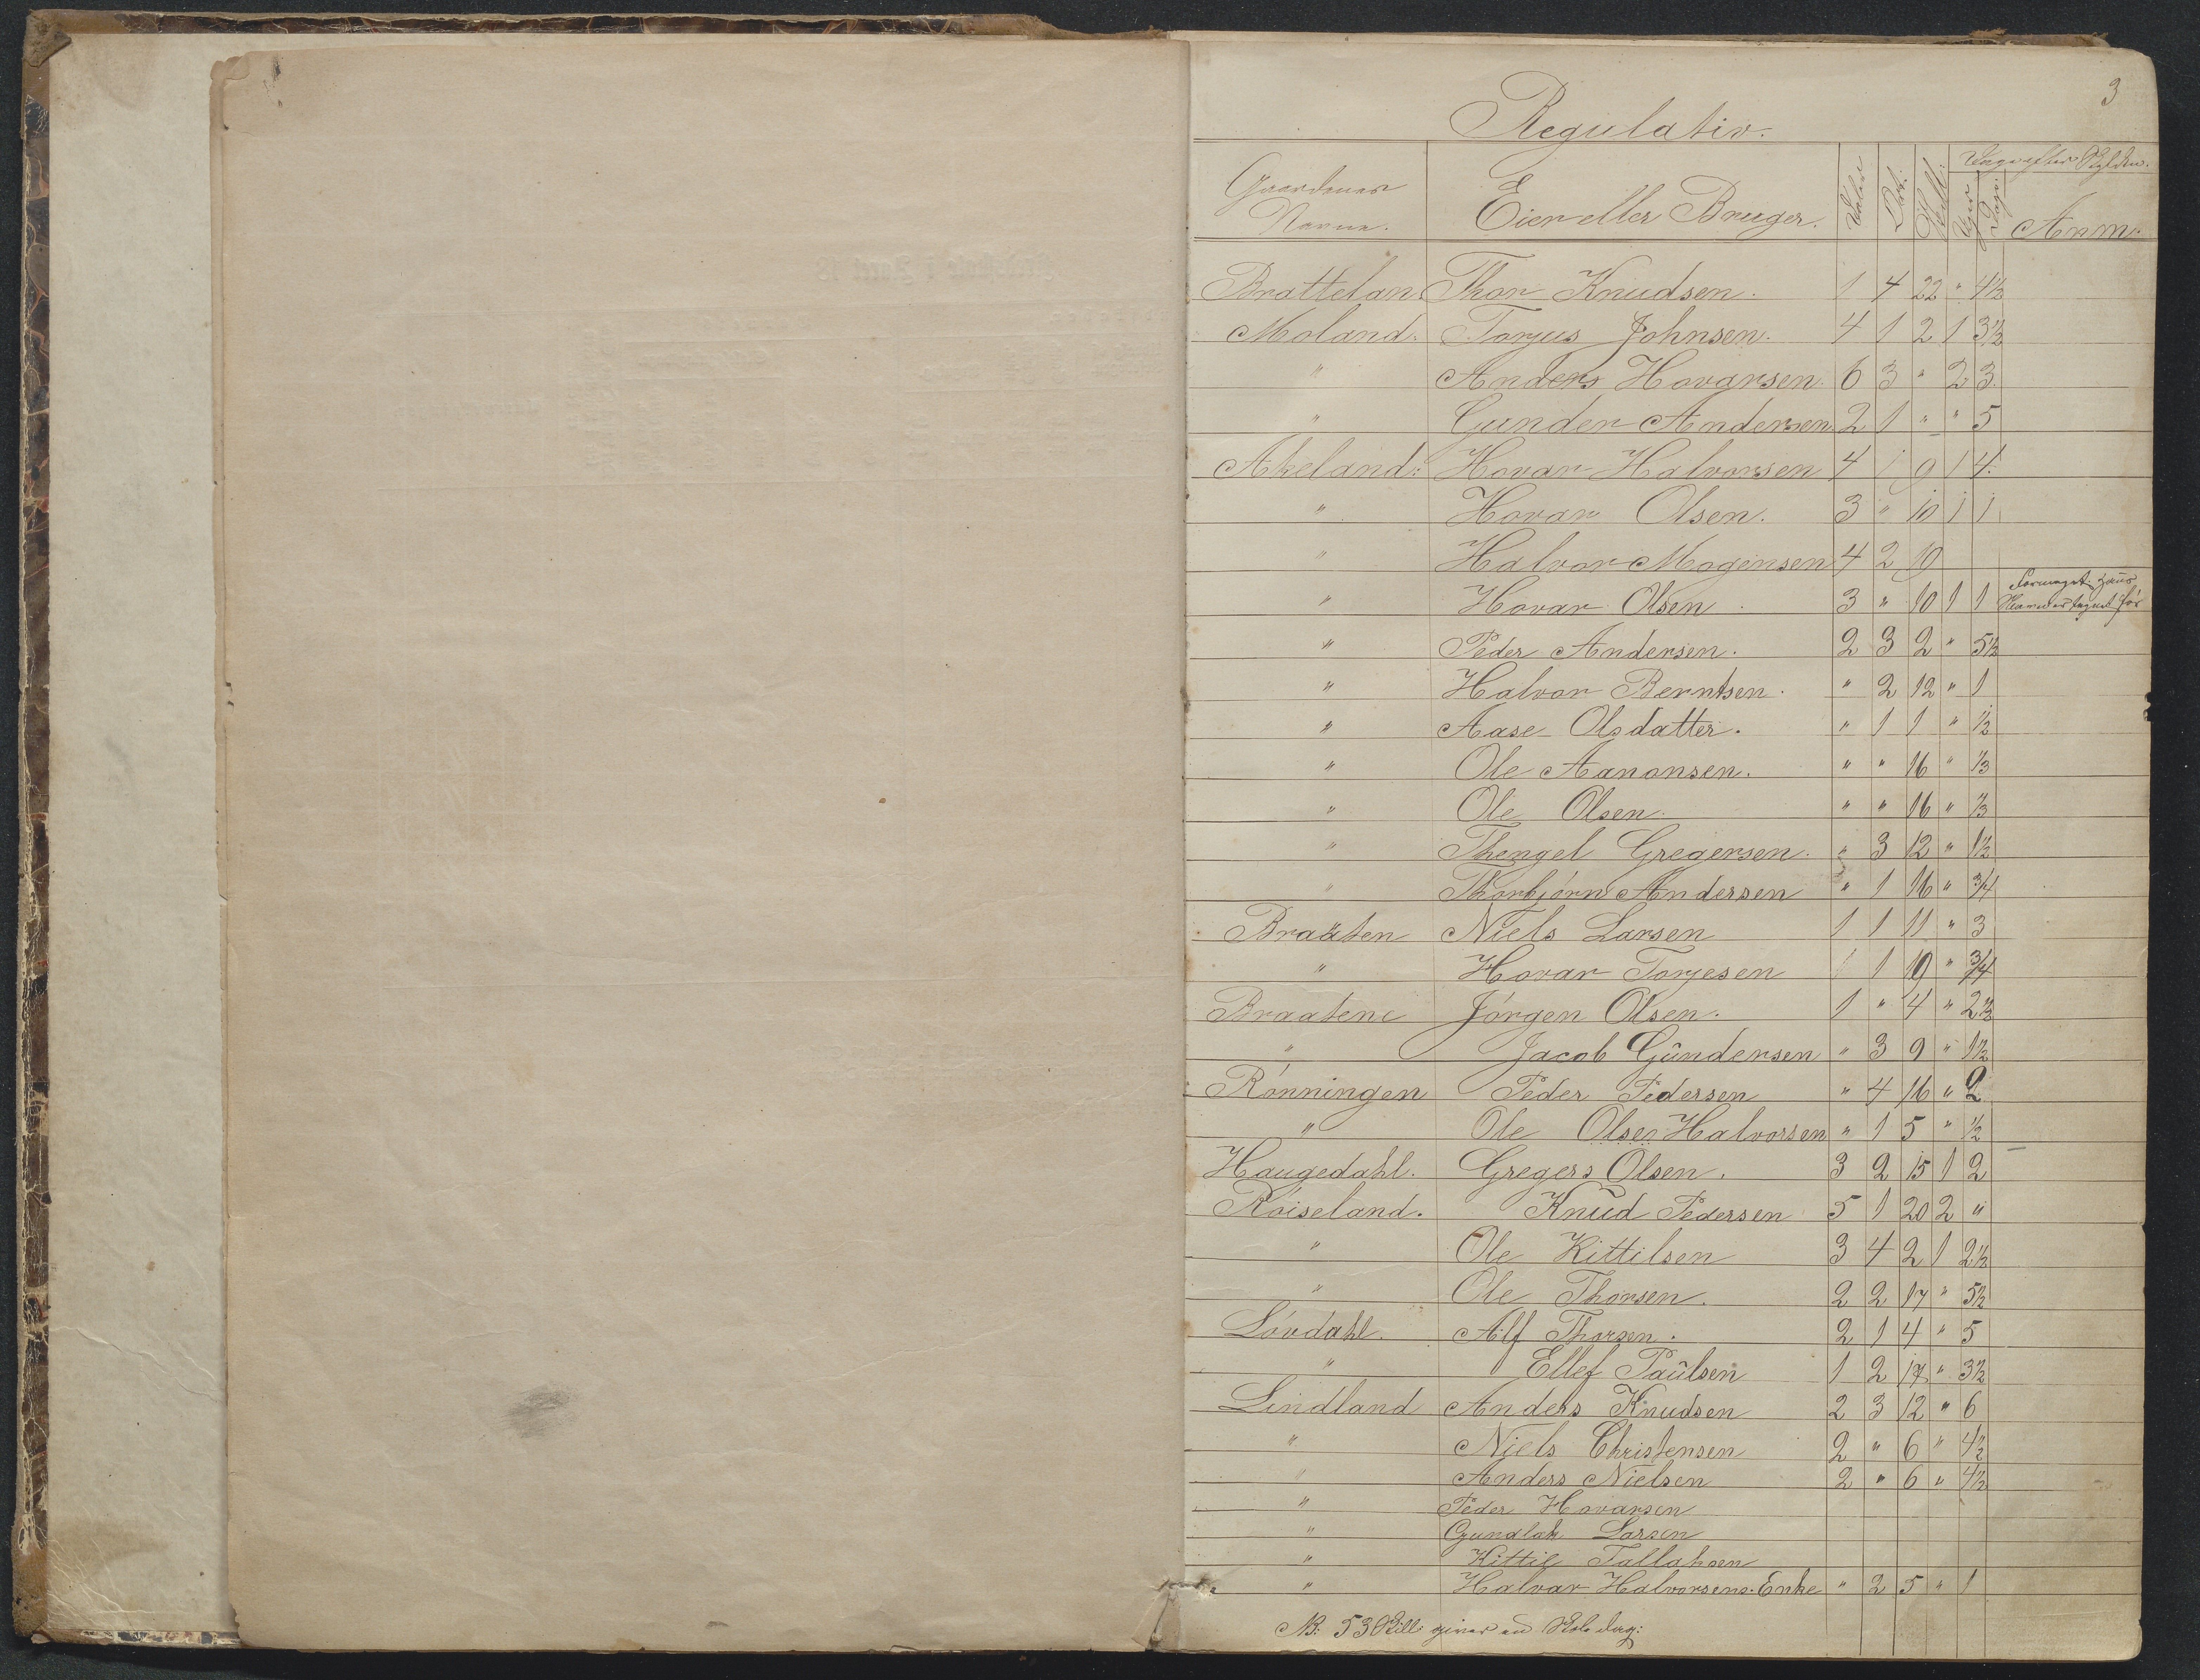 3
Regulativ.
Gaardenes Navne. Eier eller Bruger. Daler Ort. Skill. Uger Dage. Anm.
Brattelan Thor Knudsen. 1 4 22 " 4½
Moland. Torjus Johnsen. 4 1 2 1 3½
" Anders Hovarsen. 6 3 " 2 3.
" Gunder Andersen 2 1 " " 5
Akeland: Hovar Halvorsen 4 1 9 1 4.
" Hovar Olsen. 3 " 10 1 1
" Halvor Mogensen 4 2 19
" Hovar Olsen 3 " 10 1 1
" Peder Andersen. 2 3 2 " 5½
" Halvor Berntsen. " 2 12 " 1
" Aase Olsdatter. " 1 1 " ½
" Ole Aanonsen. " " 16 " ⅓
" Ole Olsen. " " 16 " ⅓
" Thengel Gregersen. " 3 12 " 1½
" Thorbjörn Andersen " 1 16 " ¾
Braaten Niels Larsen 1 1 11 " 3
" Hovar Torjesen 1 1 10 " ¾
Braatene Jörgen Olsen. 1 " 4 " 2½
" Jacob Gündersen " 3 9 " 1½
Rönningen Peder Pedersen " 4 16 " 2
" Ole Olsen Halvorsen " 1 5 " ½
Haugedahl. Gregers Olsen. 3 2 15 1 2
Röiseland. Knud Pedersen 5 1 20 2 "
" Ole Kittilsen 3 4 2 1 2½
" Ole Thorsen. 2 2 17 " 5½
Lövdahl. Alf Thorsen. 2 1 4 " 5
" Ellef Paülsen 1 2 17 " 3½
Lindland Anders Knudsen 2 3 12 " 6
" Niels Christensen 2 " 6 " 4½
" Anders Nielsen 2 " 6 " 4½
" Peder Hovarsen
" Gundlak Larsen
" Kittil Tallaksen
" Halvor Halvorsens Enke " 2 5 " 1
NB: 53 Skill giver en Skoledag: